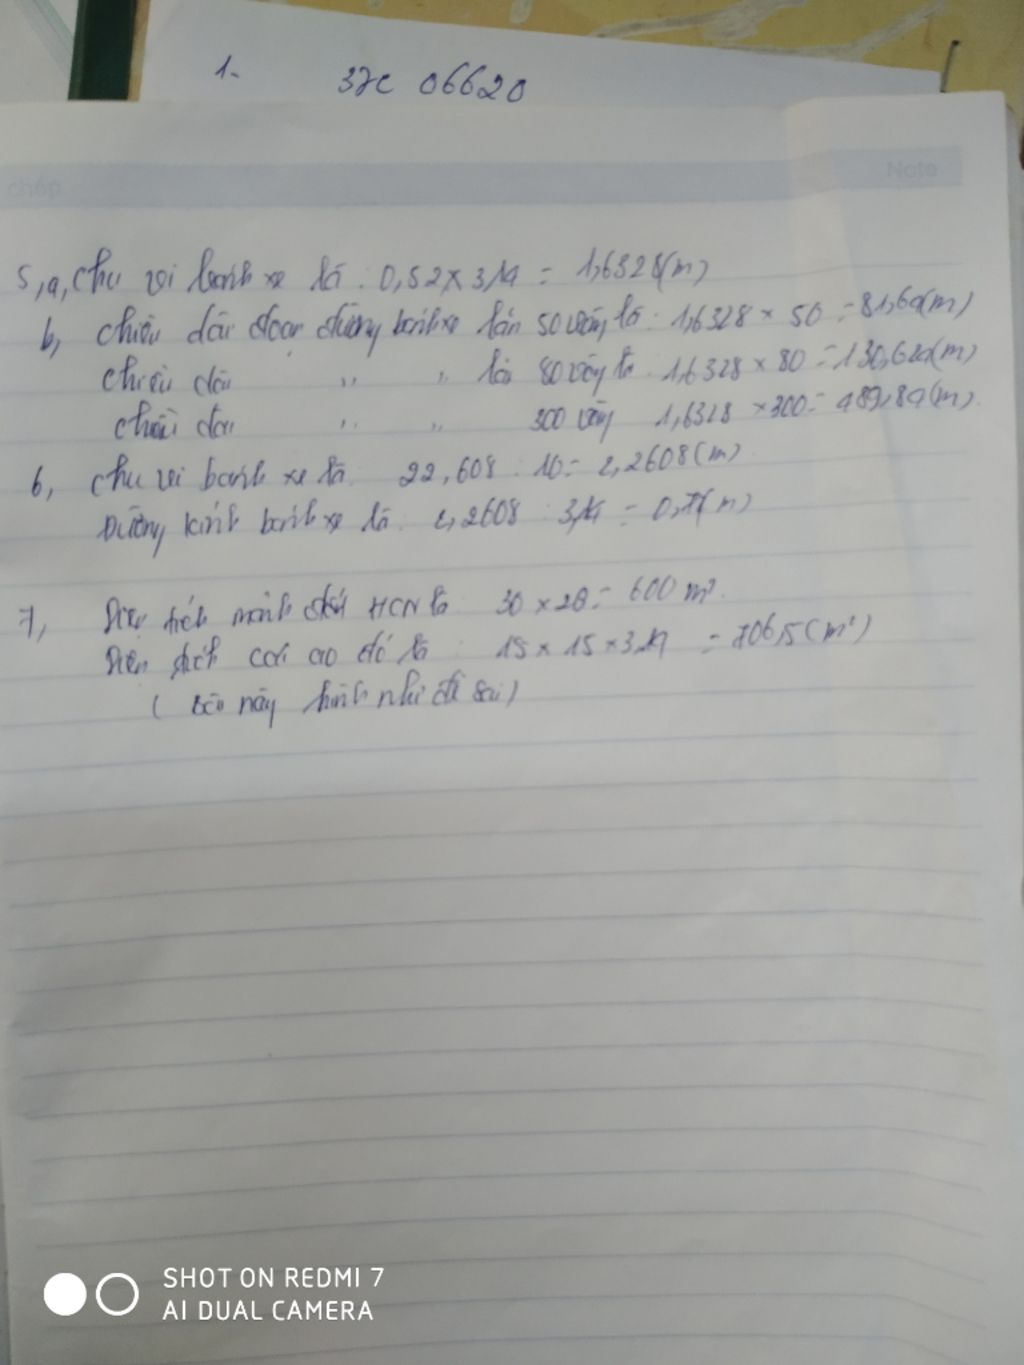 1. 37C 06620
chép Note
5, a, Chu vi bánh xe là : 0,52 x 3,14 = 1,6328(m)
b, chiều dài đoạn đường bánh xe lăn 50 vòng là : 1,6328 x 50 = 81,64(m)
chiều dài " " lăn 80 vòng là 1,6328 x 80 = 130,624(m)
chiều dài " " 300 vòng 1,6328 x 300 = 489,84(m)
6, chu vi bánh xe là 22,608 : 10 = 2,2608(m)
Đường kính bánh xe là : 2,2608 : 3,14 = 0,7(m)
7, Diện tích mảnh đất HCN là 30 x 20 = 600 m²
Diện tích cái ao đó là : 15 x 15 x 3,14 = 706,5(m²)
( bài này hình như đề sai)
SHOT ON REDMI 7
AI DUAL CAMERA